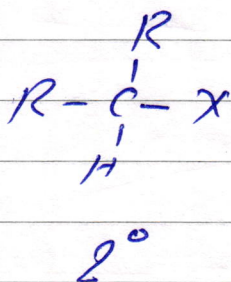 R
R - C - X
H
2°